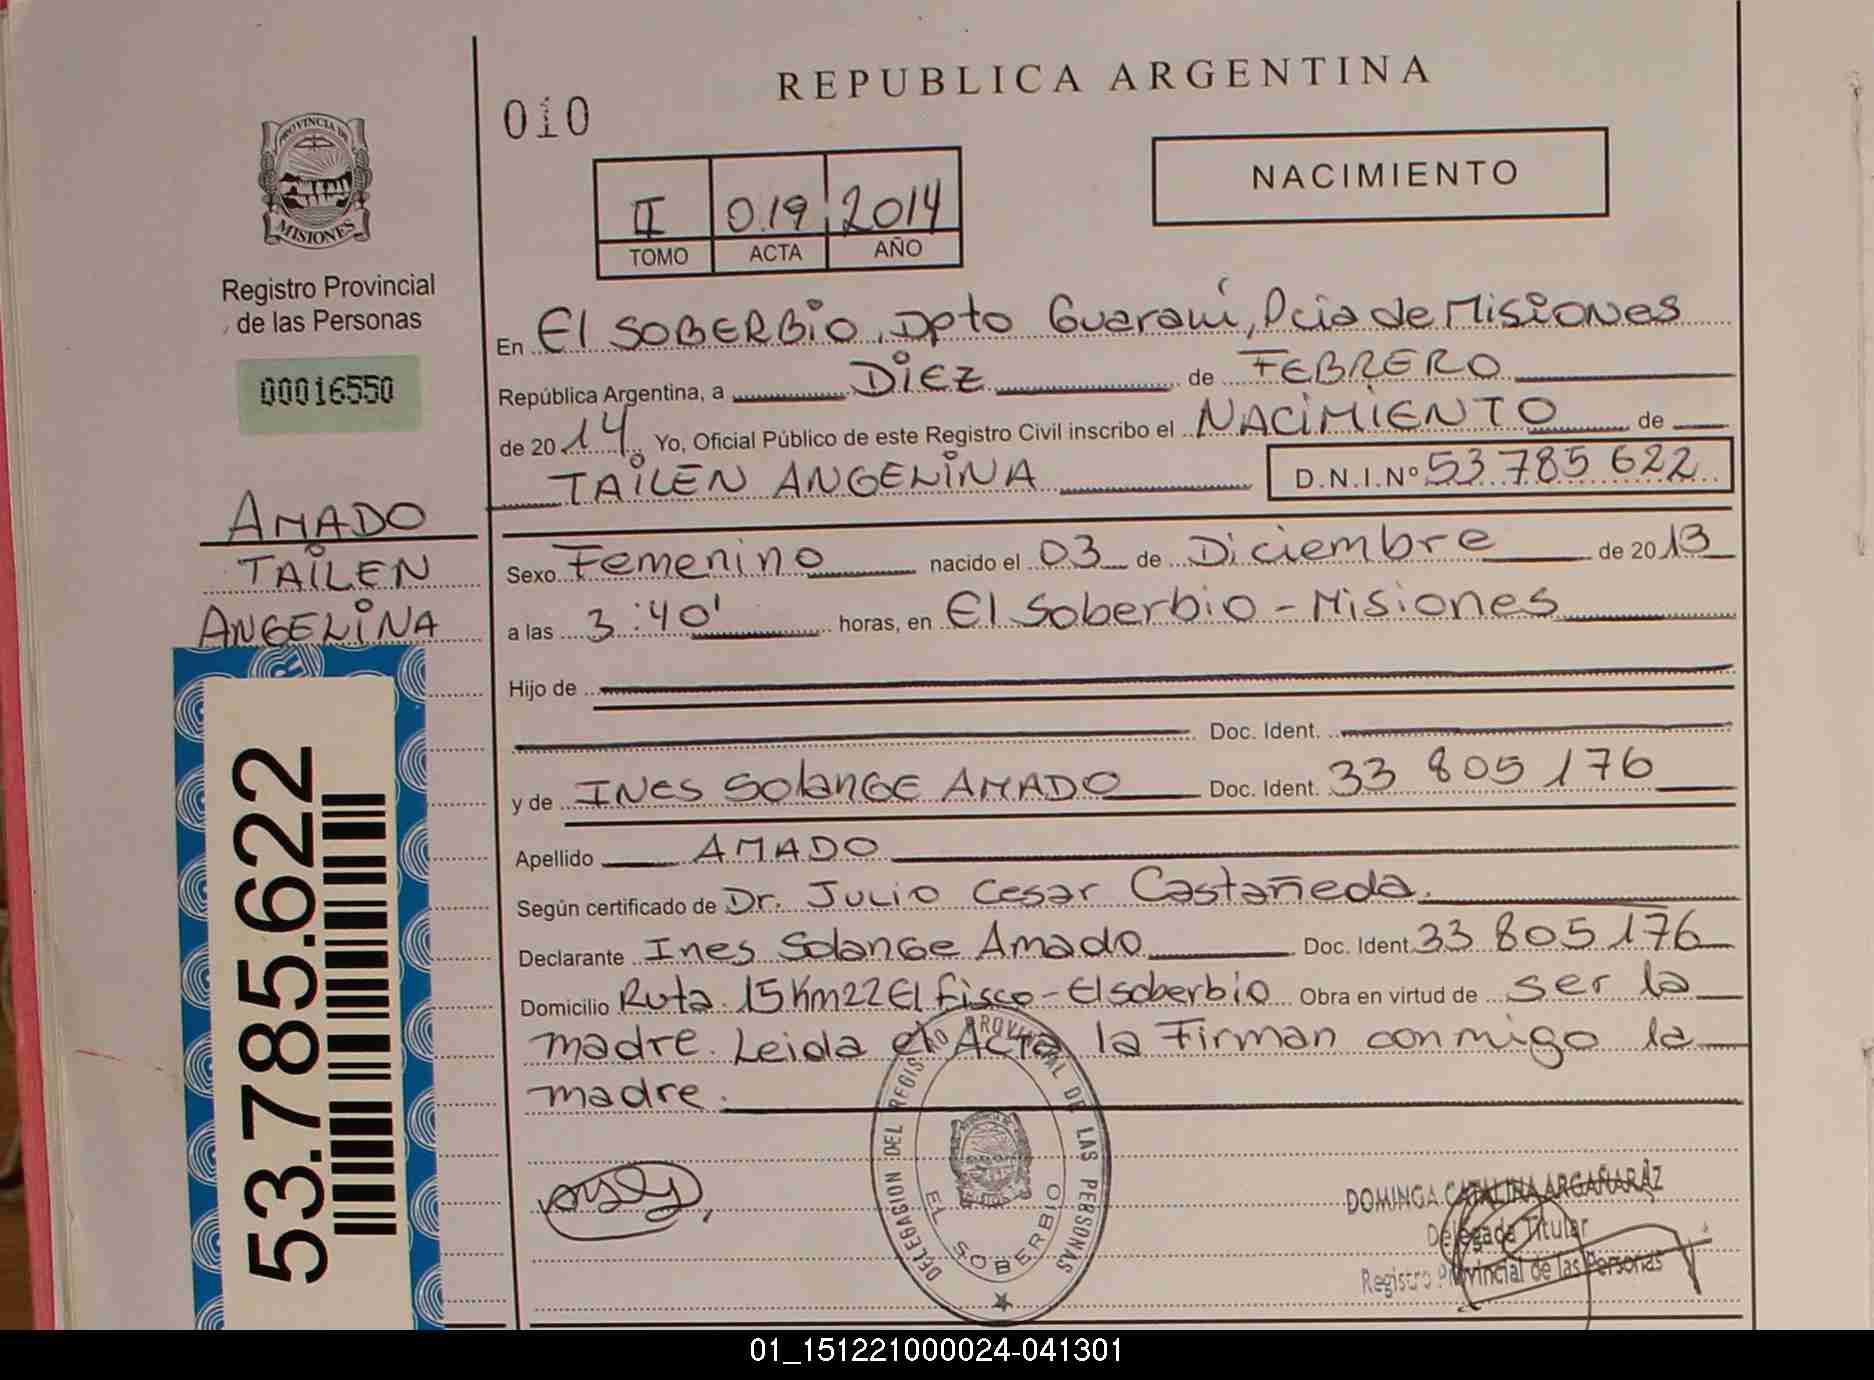 REPUBLICA ARGENTINA
010
NACIMIENTO
II 019 2014
TOMO ACTA AÑO
PROVINCIA DE
MISIONES
Registro Provincial
de las Personas
00016550
AMADO
TAILEN
ANGELINA
53.785.622
En El SOBERBIO, Dpto Guaraní, Pcia de Misiones
República Argentina, a DIEZ de FEBRERO
de 2014. Yo, Oficial Público de este Registro Civil inscribo el NACIMIENTO de
TAILEN ANGELINA D.N.I.Nº 53 785 622
Sexo Femenino nacido el 03 de Diciembre de 2013
a las 3:40' horas, en El Soberbio - Misiones
Hijo de
Doc. Ident.
y de INES SOLANGE AMADO Doc. Ident. 33 805 176
Apellido AMADO
Según certificado de Dr. Julio Cesar Castañeda.
Declarante Ines Solange Amado Doc. Ident. 33 805 176
Domicilio Ruta 15 Km 22 El Fisco - El soberbio Obra en virtud de ser la
madre. Leida el Acta la Firman conmigo la
madre.
DELEGACION DEL REGISTRO PROVINCIAL DE LAS PERSONAS
EL SOBERBIO
DOMINGA CATALINA ARGAÑARAZ
Delegada Titular
Registro Provincial de las Personas
01_151221000024-041301